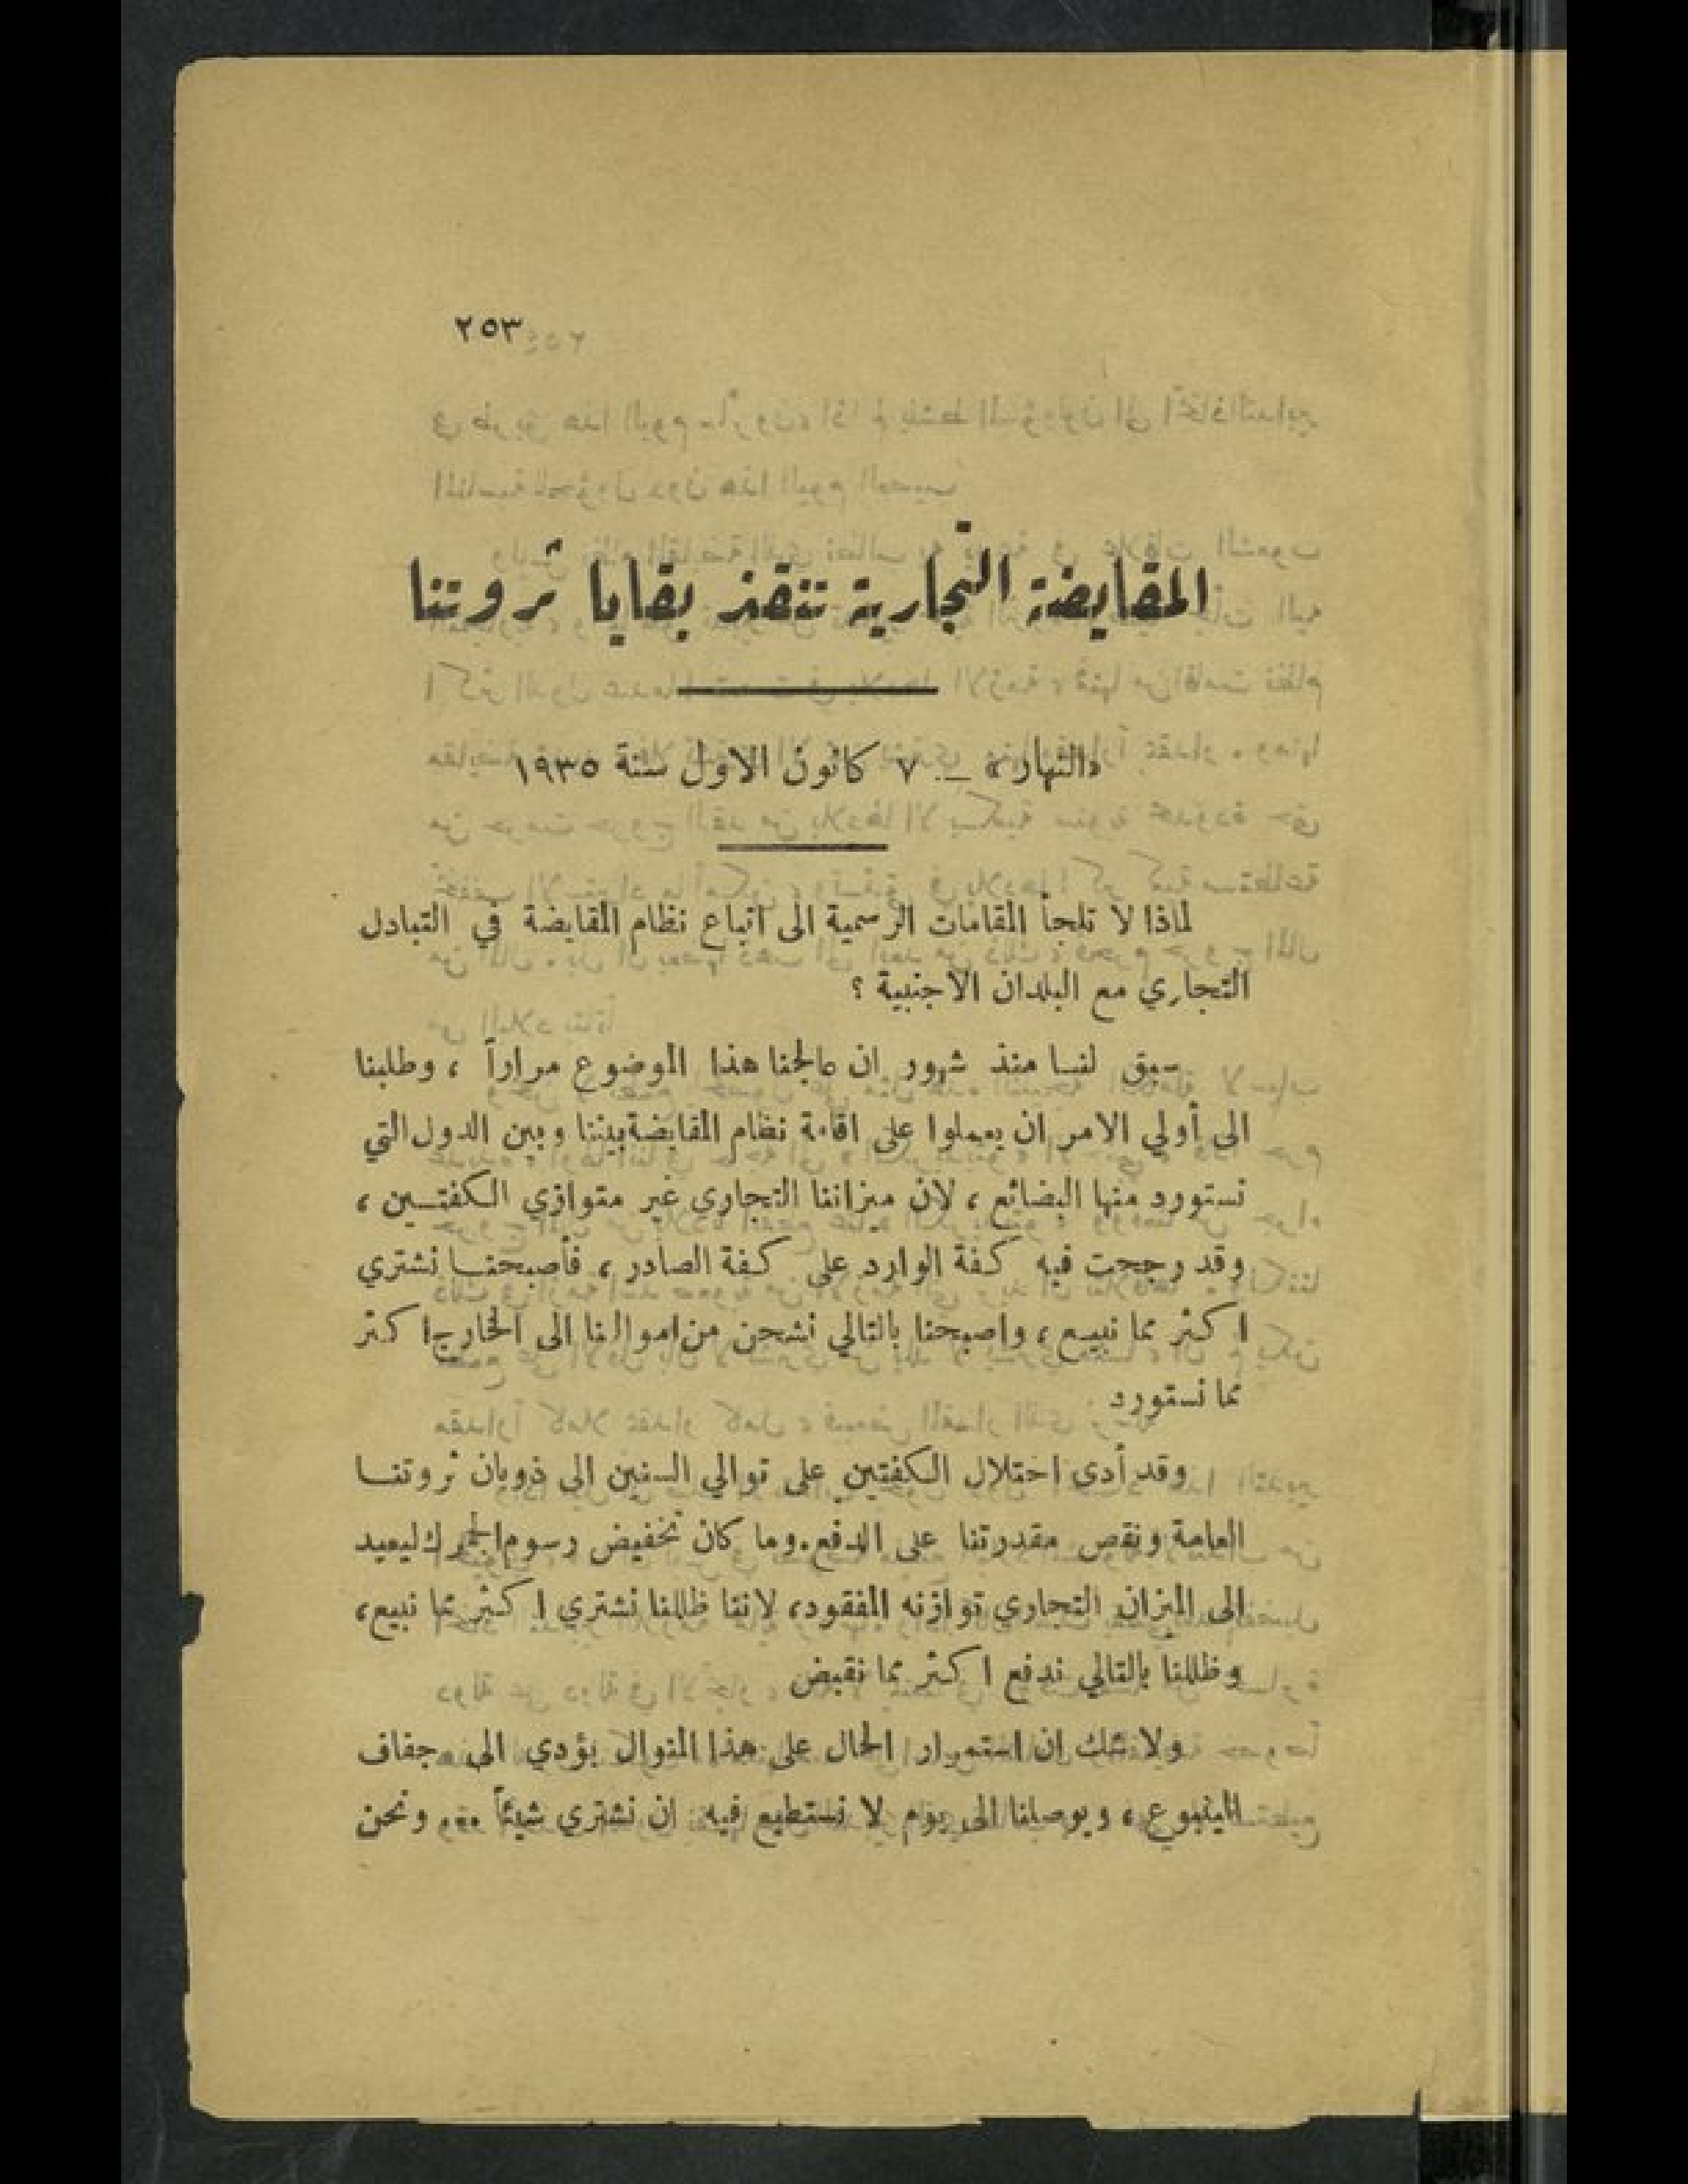 ٢٥٣
المقايضة التجارية تنقذ بقايا ثروتنا
«النهار» — ٧ كانون الاول سنة ١٩٣٥
لماذا لا تلجأ المقامات الرسمية الى اتباع نظام المقايضة في التبادل
التجاري مع البلدان الاجنبية ؟
سبق لنا منذ شهور ان عالجنا هذا الموضوع مراراً ، وطلبنا
الى أولي الامر ان يعملوا على اقامة نظام المقايضة بيننا وبين الدول التي
نستورد منها البضائع ، لان ميزاننا التجاري غير متوازي الكفتين ،
وقد رجحت فيه كفة الوارد على كفة الصادر ، فأصبحنا نشتري
اكثر مما نبيع ، واصبحنا بالتالي نشحن من اموالنا الى الخارج اكثر
مما نستورد
وقد أدى اختلال الكفتين على توالي السنين الى ذوبان ثروتنا
العامة ونقص مقدرتنا على الدفع. وما كان تخفيض رسوم الجمرك ليعيد
الى الميزان التجاري توازنه المفقود، لاننا ظللنا نشتري اكثر مما نبيع،
وظللنا بالتالي ندفع اكثر مما نقبض
ولا شك ان استمرار الحال على هذا المنوال يؤدي الى جفاف
الينبوع ، ويوصلنا الى يوم لا نستطيع فيه ان نشتري شيئاً ... ونحن